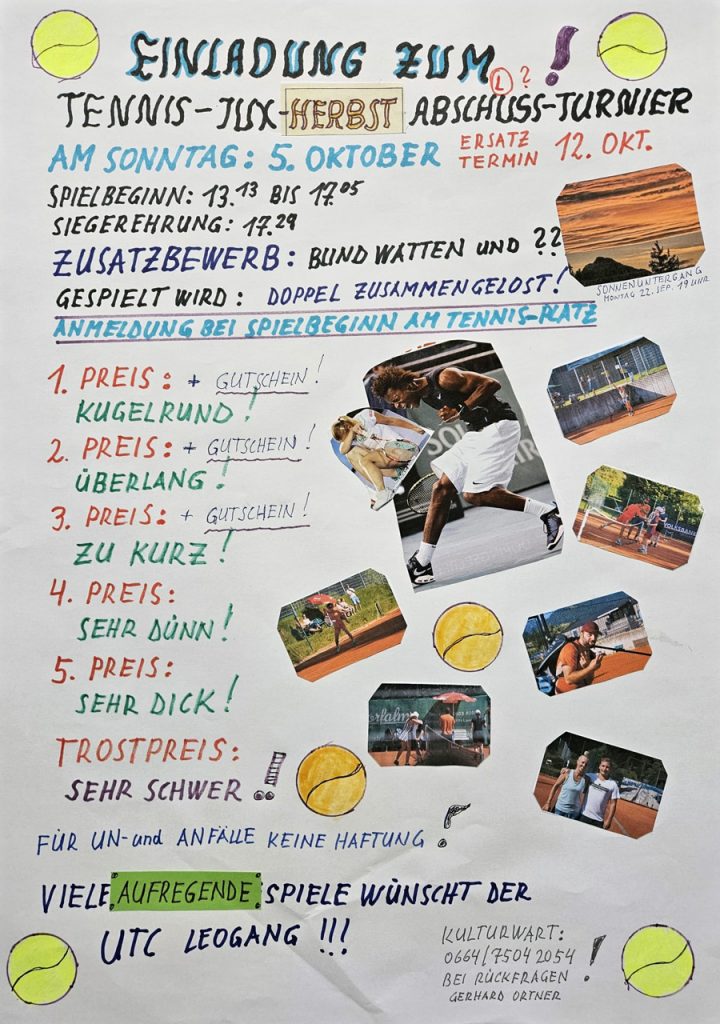 EINLADUNG ZUM !
L ?
TENNIS-JUX-HERBST ABSCHUSS-TURNIER
AM SONNTAG: 5. OKTOBER ERSATZ TERMIN 12. OKT.
SPIELBEGINN: 13.13 BIS 17.05
SIEGEREHRUNG: 17.29
ZUSATZBEWERB: BLIND WATTEN UND ??
GESPIELT WIRD: DOPPEL ZUSAMMENGELOST!
SONNENUNTERGANG
MONTAG 22. SEP. 19 UHR
ANMELDUNG BEI SPIELBEGINN AM TENNIS-PLATZ
1. PREIS: + GUTSCHEIN!
KUGELRUND!
2. PREIS: + GUTSCHEIN!
ÜBERLANG!
3. PREIS: + GUTSCHEIN!
ZU KURZ!
4. PREIS:
SEHR DÜNN!
5. PREIS:
SEHR DICK!
TROSTPREIS:
SEHR SCHWER!!
VOLKSBANK
FÜR UN- und ANFÄLLE KEINE HAFTUNG!
VIELE AUFREGENDE SPIELE WÜNSCHT DER
UTC LEOGANG !!!
KULTURWART:
0664/7504 2054
BEI RÜCKFRAGEN !
GERHARD ORTNER